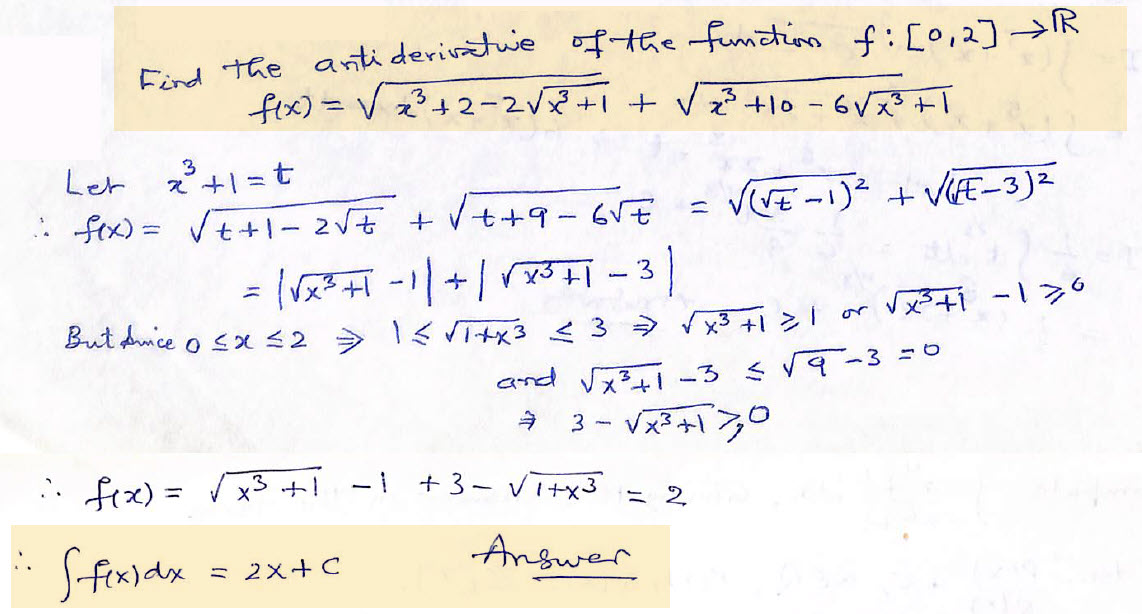 Find the antiderivative of the function f : [0,2] → ℝ
f(x) = √(x³+2-2√(x³+1)) + √(x³+10-6√(x³+1))
Let x³+1 = t
∴ f(x) = √(t+1-2√t) + √(t+9-6√t) = √((√t-1)²) + √((√t-3)²)
= |√(x³+1) -1| + |√(x³+1) - 3|
But since 0 ≤ x ≤ 2 ⇒ 1 ≤ √(1+x³) ≤ 3 ⇒ √(x³+1) ≥ 1 or √(x³+1) - 1 ≥ 0
and √(x³+1) - 3 ≤ √9 - 3 = 0
⇒ 3 - √(x³+1) ≥ 0
∴ f(x) = √(x³+1) - 1 + 3 - √(1+x³) = 2
∴ ∫f(x)dx = 2x + C Answer